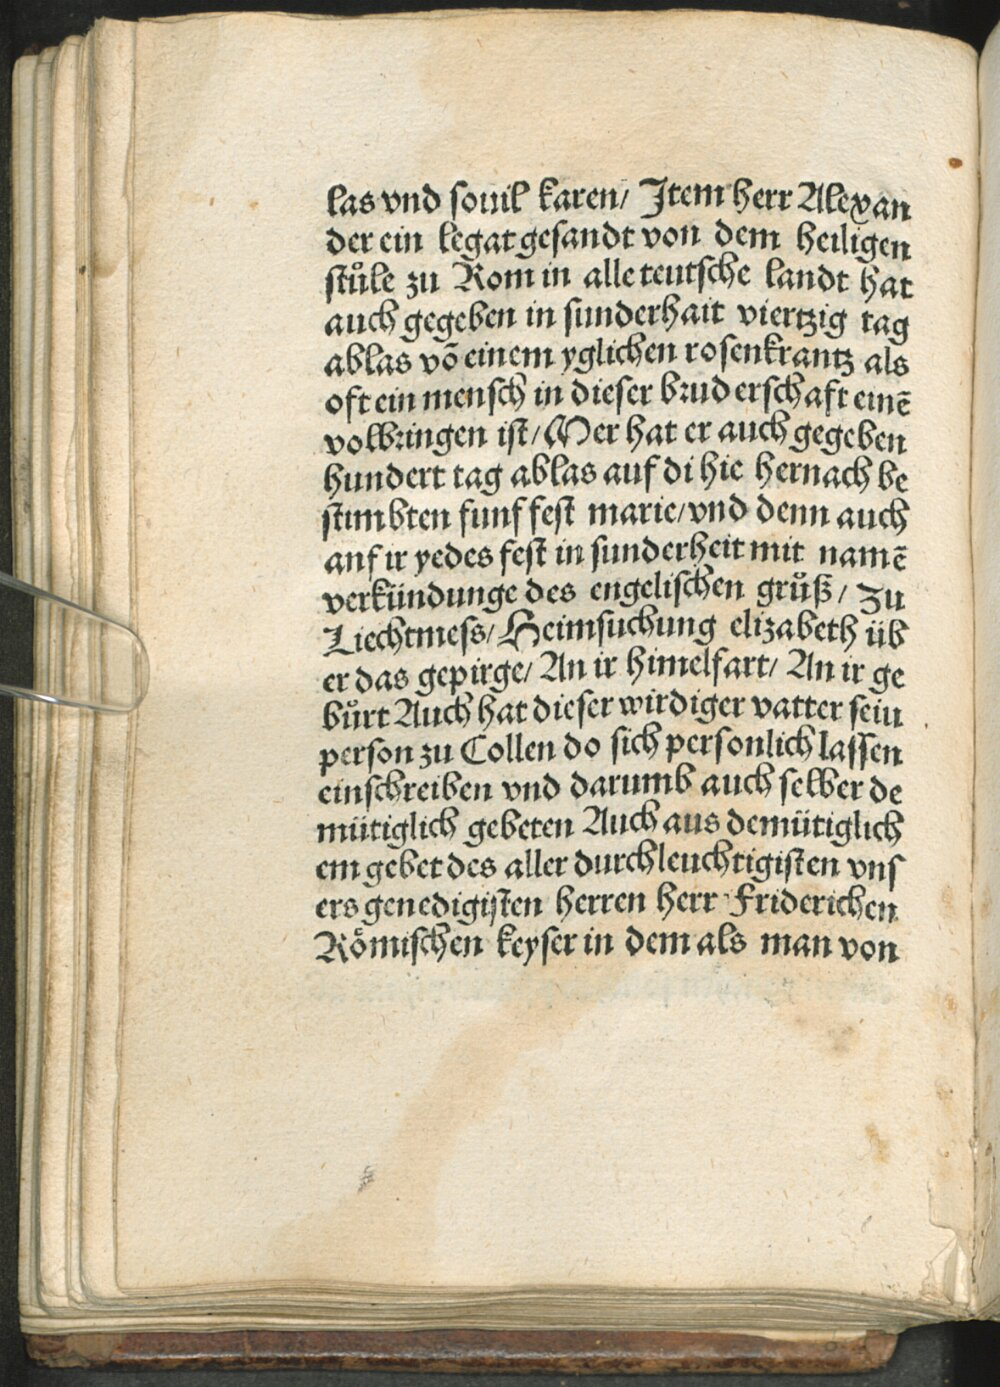 las vnd souil karen/ Item herr Alexan
der ein legat gesandt von dem heiligen
stůle zu Rom in alle teutsche landt hat
auch gegeben in sunderhait viertzig tag
ablas võ einem yglichen rosenkrantz als
oft ein mensch in dieser bruderschaft einẽ
volbringen ist/ Mer hat er auch gegeben
hundert tag ablas auf di hie hernach be
stimbten funf fest marie/ vnd denn auch
anf ir yedes fest in sunderheit mit namẽ
verkündunge des engelischen grůß/ Zu
Liechtmess/ Heimsuchung elizabeth üb
er das gepirge/ An ir himelfart/ An ir ge
bůrt Auch hat dieser wirdiger vatter sein
person zu Collen do sich personlich lassen
einschreiben vnd darumb auch selber de
mütiglich gebeten Auch aus demütiglich
em gebet des aller durchleuchtigisten vns
ers genedigisten herren herr Friderichen
Römischen keyser in dem als man von